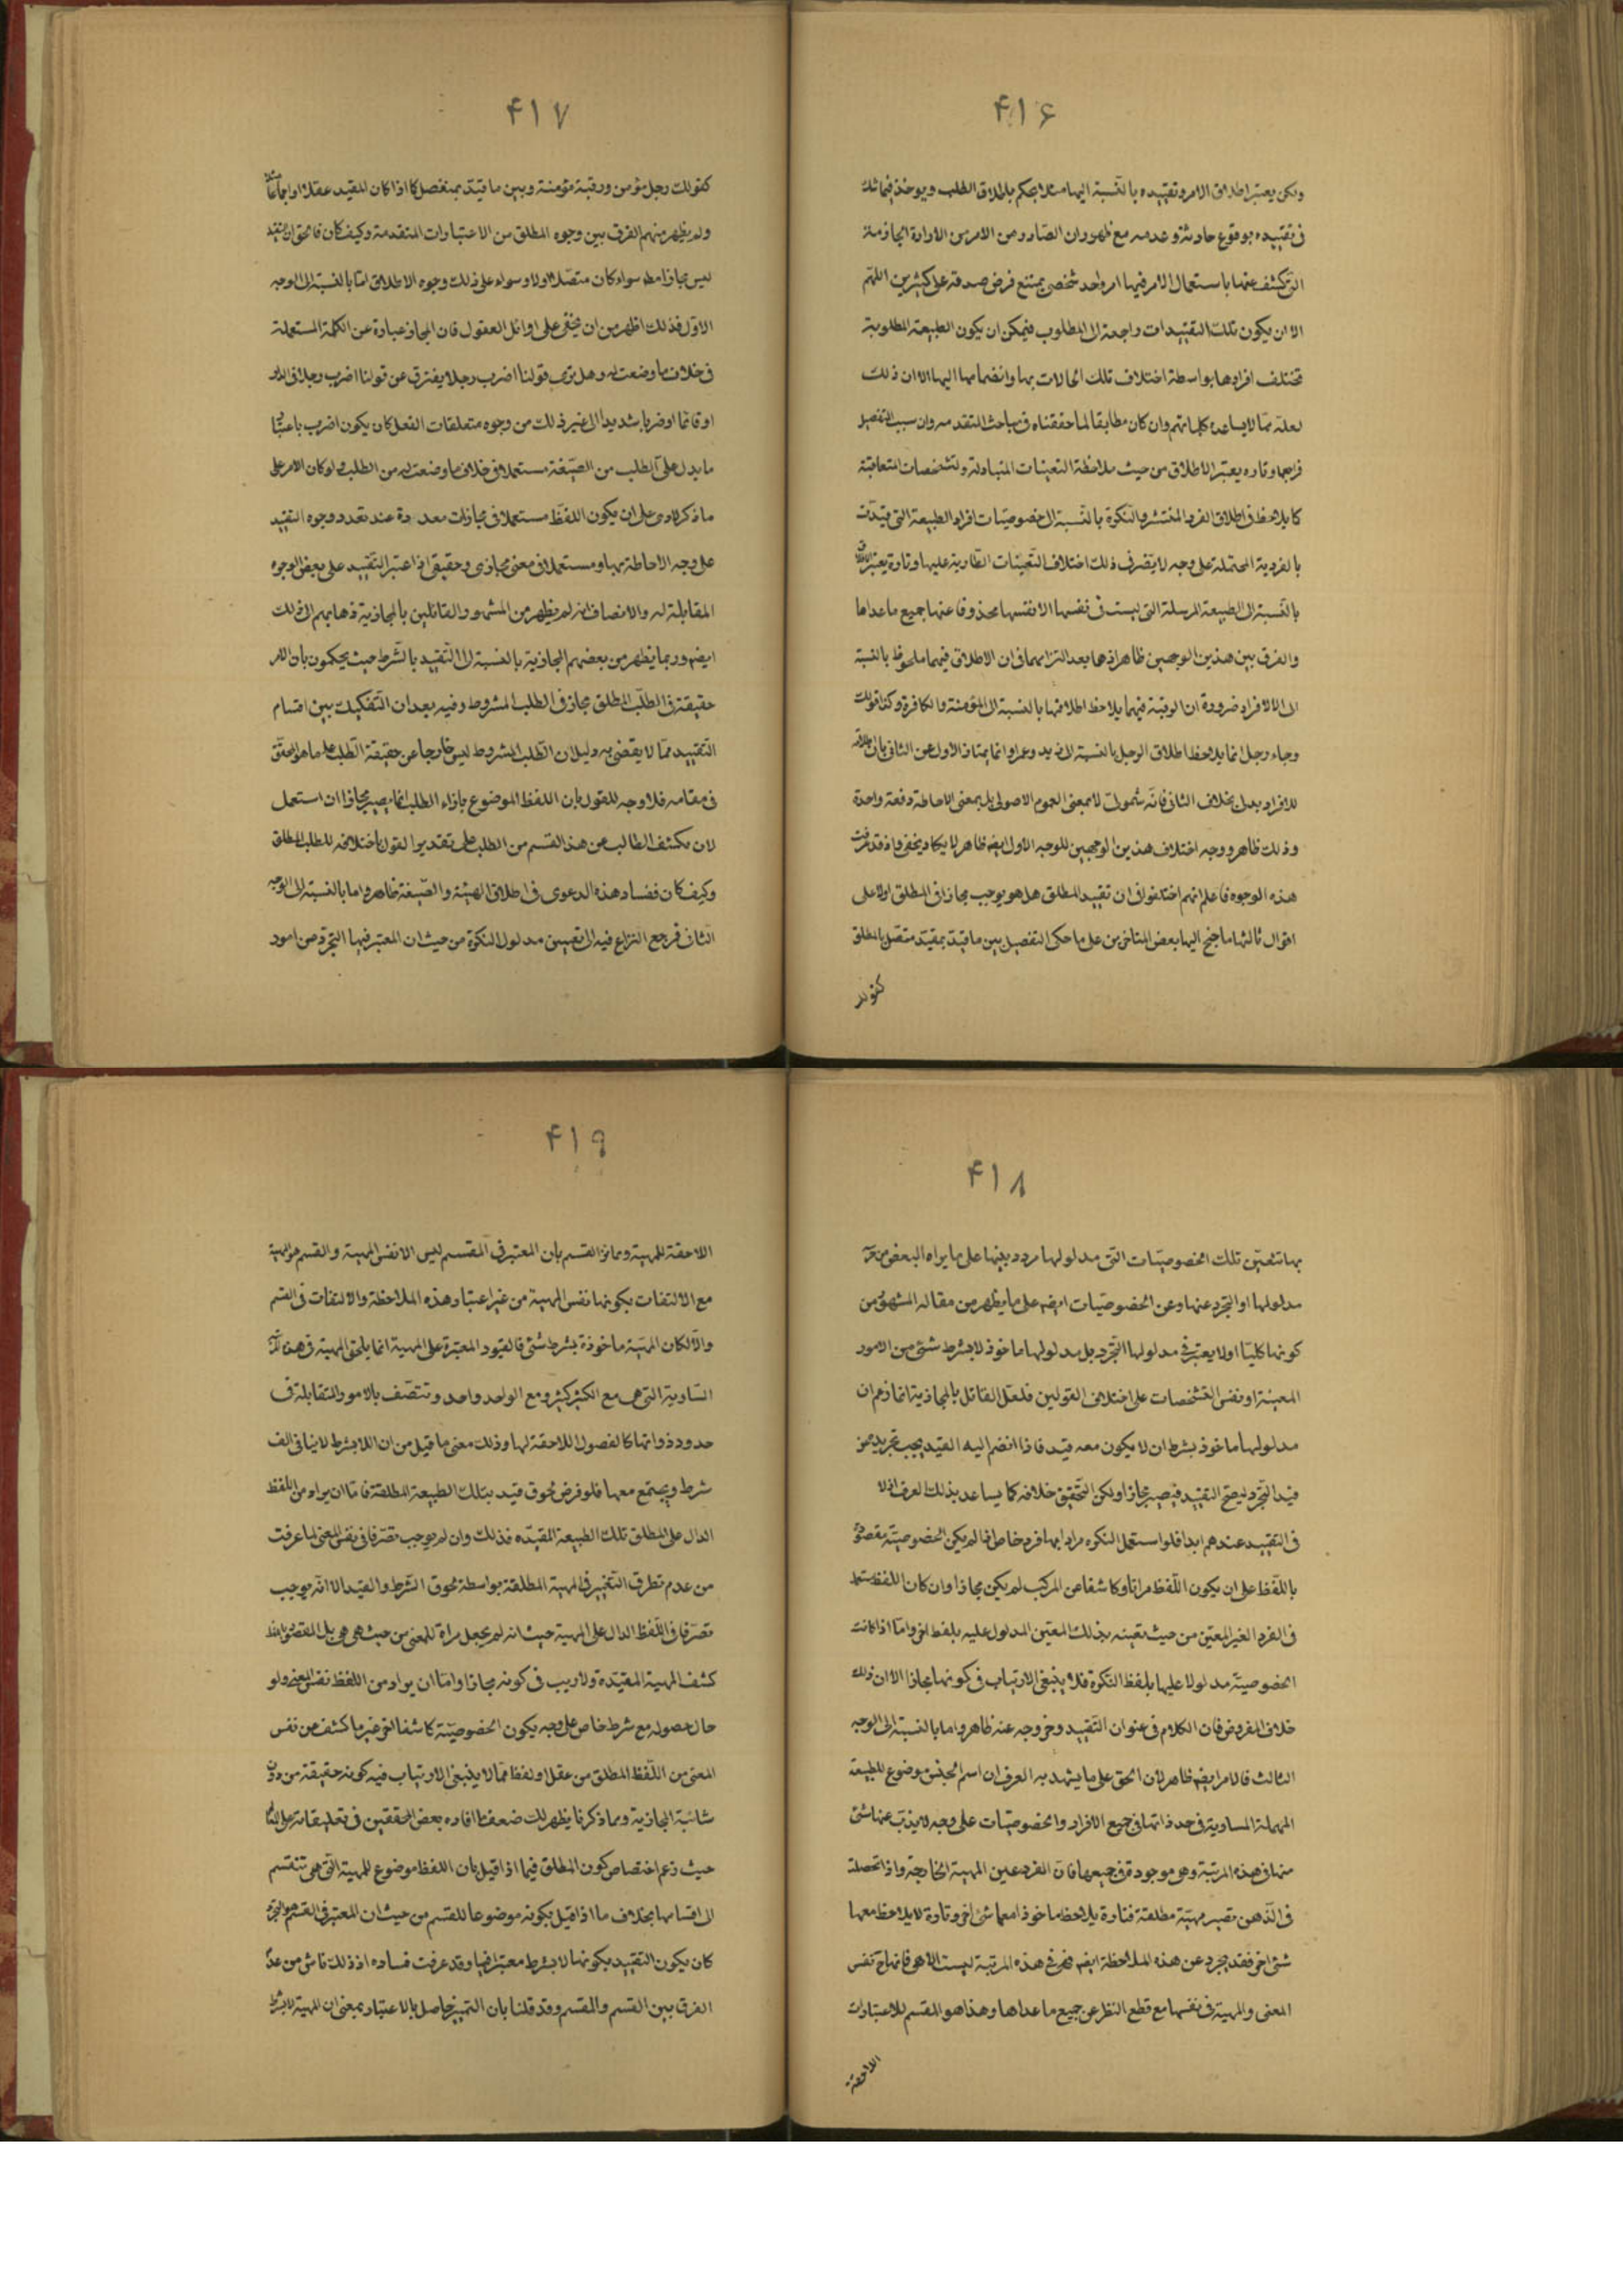 ۴۱۶
ولكن يعتبر اطلاق الامر وتقييده بالنسبة اليها مثلا يحكم باطلاق الطلب ويوخذ فيما شك
فى تقييده بوقوع حادثة وعدمه مع ظهور ان الصادر من الامر من الارادة الجازمة
التى يكشف عنها باستعمال الامر فيها امر واحد شخصى يمتنع فرض صدقه على كثيرين اللهم
الا ان يكون تلك التقييدات راجعة الى المطلوب فيمكن ان يكون الطبيعة المطلوبة
تختلف افرادها بواسطة اختلاف تلك الحالات بها وانضمامها اليها الا ان ذلك
لعله مما لا يساعده كلماتهم وان كان مطابقا لما حققناه فى مباحث المقدمة وان سبب التفصيل
فراجعها وتارة يعتبر الاطلاق من حيث ملاحظة التعينات المتبادلة والتشخصات المتعاقبة
كما يلاحظ فى اطلاق الفرد المنتشر والنكرة بالنسبة الى خصوصيات افراد الطبيعة التى قيدت
بالفردية المحتملة على وجه لا يضر فى ذلك اختلاف التعينات الطارية عليها وتارة يعتبر الاطلاق
بالنسبة الى الطبيعة المرسلة التى ليست فى نفسها الا نفسها محذوفا عنها جميع ما عداها
والفرق بين هذين الوجهين ظاهر اذ هما بعد اشتراكهما فى ان الاطلاق فيهما ملحوظ بالنسبة
الى الافراد ضرورة ان الرقبة فيهما يلاحظ اطلاقها بالنسبة الى المؤمنة والكافرة وكذا قولك
وجاء رجل انما يلاحظ اطلاق الرجل بالنسبة الى زيد وعمرو انما يمتاز الاول عن الثانى بان اطلاقه
للافراد بدلى بخلاف الثانى فانه شمولى لا بمعنى العموم الاصولى بل بمعنى الاحاطة دفعة واحدة
وذلك ظاهر ووجه اختلاف هذين الوجهين للوجه الاول ايضا ظاهر لا يكاد يخفى واذ قد عرفت
هذه الوجوه فاعلم انهم اختلفوا فى ان تقييد المطلق هل هو يوجب مجازا فى المطلق اولا على
اقوال ثالثها ما جنح اليها بعض المتاخرين على ما حكى التفصيل بين ما قيد بمقيد متصل بالمطلق
كقولك
۴۱۷
كقولك رجل مؤمن ورقبة مؤمنة وبين ما قيد بمنفصل كما اذا كان المقيد عقلا او اجماعا
ولم يظهر منهم الفرق بين وجوه المطلق من الاعتبارات المتقدمة وكيف كان فالحق ان التقييد
ليس مجازا مطه سواء كان متصلا اولا وسواء على ذلك وجوه الاطلاق اما بالنسبة الى الوجه
الاول فذلك اظهر من ان يخفى على اوائل العقول فان المجاز عبارة عن الكلمة المستعملة
فى خلاف ما وضعت له وهل ترى قولنا اضرب رجلا يفترق عن قولنا اضرب رجلا فى الدار
او قائما او ضربا شديدا الى غير ذلك من وجوه متعلقات الفعل كان يكون اضرب باعتبار
ما يدل على الطلب من الصيغة مستعملا فى خلاف ما وضعت له من الطلب ولو كان الامر على
ما ذكر لادى على ان يكون اللفظ مستعملا فى مجازات معدودة عند تعدد وجوه التقييد
على وجه الاحاطة بها ومستعملا فى معنى مجازى وحقيقى اذا اعتبر التقييد على بعض الوجوه
المقابلة له والانصاف انه لم يظهر من المشهور والقائلين بالمجازية ذهابهم الى ذلك
ايضه وربما يظهر من بعضهم المجازية بالنسبة الى التقييد بالشرط حيث يحكمون بان الامر
حقيقة فى الطلب المطلق مجاز فى الطلب المشروط وفيه بعد ان التفكيك بين اقسام
التقييد مما لا يقضى به دليل ان الطلب المشروط ليس خارجا عن حقيقة الطلب على ما هو المحقق
فى مقامه فلا وجه للقول بان اللفظ الموضوع بازاء الطلب انما يصير مجازا ان استعمل
لان يكشف الطالب عن هذا القسم من الطلب على تقدير القول باختلافه للطلب المطلق
وكيف كان ففساد هذه الدعوى فى اطلاق الهيئة والصيغة ظاهر واما بالنسبة الى الوجه
الثانى فمرجع النزاع فيه الى تعيين مدلول النكرة من حيث ان المعتبر فيها التجرد من امور
۴۱۸
بها تتعين تلك الخصوصيات التى مدلولها مردد بينها على ما يراه البعض من
مدلولها او التجرد عنها وعن الخصوصيات ايضه على ما يظهر من مقالة المشهور من
كونها كليا اولا يعتبر فى مدلولها التجرد بل مدلولها ماخوذ لا بشرط شئ من الامور
المعينة او نفس التشخصات على اختلاف القولين فلعل القائل بالمجازية انما زعم ان
مدلولها ماخوذ بشرط ان لا يكون معه قيد فاذا انضم اليه القيد يجب تجريده عن
قيد التجرد ليصح التقييد فيصير مجازا ولكن التحقيق خلافه كما يساعد بذلك العرف اذ لا
فى التقييد عندهم ابدا فلو استعمل النكره مرادا بها فرد خاص فما لم يكن الخصوصية مقصودة
باللفظ على ان يكون اللفظ مراتا وكاشفا عن المركب لم يكن مجازا وان كان اللفظ مستعملا
فى الفرد الغير المعين من حيث تعينه بذلك المعين المدلول عليه بلفظ اخر واما اذا كانت
الخصوصية مدلولا عليها بلفظ النكرة فلا ينبغى الارتياب فى كونها مجازا الا ان ذلك
خلاف المفروض فان الكلام فى عنوان التقييد وخروجه عنه ظاهر واما بالنسبة الى الوجه
الثالث فالامر ايضه ظاهر لان الحق على ما يشهد به العرف ان اسم الجنس موضوع للطبيعة
المهملة المساوية فى حد ذاتها فى جميع الافراد والخصوصيات على وجه لا يذب عنها شئ
منها فى هذه المرتبة وهى موجودة فى جميعها فان الفرد عين المهية الخارجية واذا تحصلت
فى الذهن تصير مهية مطلقة فتارة يلاحظ ماخوذا معها شئ اخر وتارة لا يلاحظ معها
شئ اخر فقد تجرد عن هذه الملاحظة ايضه فهى فى هذه المرتبة ليست الا هى فانها ح نفس
المعنى والمهية فى نفسها مع قطع النظر عن جميع ما عداها وهذا هو المقسم للاعتبارات
اللاحقة
۴۱۹
اللاحقة للمهية وتمايز القسم بان المعتبر فى المقسم ليس الا نفس المهية والقسم هو المهية
مع الالتفات بكونها نفس المهية من غير اعتبار هذه الملاحظة والالتفات فى القسم
والا لكان المهية ماخوذة بشرط شئ فالقيود المعتبرة على المهية انما يلحق المهية فى هذه
السارية التى هى مع الكثير كثير ومع الواحد واحد وتتصف بالامور المتقابلة فى
حدود ذواتها كالفصول اللاحقة لها وذلك معنى ما قيل من ان اللابشرط لا ينافى الف
شرط ويجتمع معها فلو فرض لحوق قيد بتلك الطبيعة المطلقة فاما ان يراد من اللفظ
الدال على المطلق تلك الطبيعة المقيده فذلك وان لم يوجب تصرفا فى نفس المعنى لما عرفت
من عدم تطرق التغيير فى المهية المطلقة بواسطة لحوق الشرط والقيد الا انه يوجب
تصرفا فى اللفظ الدال على المهية حيث انه لم يجعل مراة للمعنى من حيث هى هى بل المقصود باللفظ
كشف المهية المقيدة ولا ريب فى كونه مجازا واما ان يراد من اللفظ نفس المعنى ولو
حال حصوله مع شرط خاص على وجه يكون الخصوصية كاشفا اخر غير ما كشف عن نفس
المعنى من اللفظ المطلق من عقل او لفظ فما لا ينبغى الارتياب فيه كونه حقيقة من دون
شائبة المجازية ومما ذكرنا يظهر لك ضعف ما افاده بعض المحققين فى تعليقاته على
حيث زعم اختصاص كون المطلق فيما اذا قيل بان اللفظ موضوع للمهية التى هى تنقسم
الى اقسامها بخلاف ما اذا قيل بكونه موضوعا للقسم من حيث ان المعتبر فى القسم هو التجرد
كان يكون التقييد بكونها لا بشرط معتبرا فيها وقد عرفت فساده اذ ذلك ناش من عدم
الفرق بين القسم والمقسم وقد قلنا بان التميز حاصل بالاعتبار بمعنى ان المهية لا بشرط